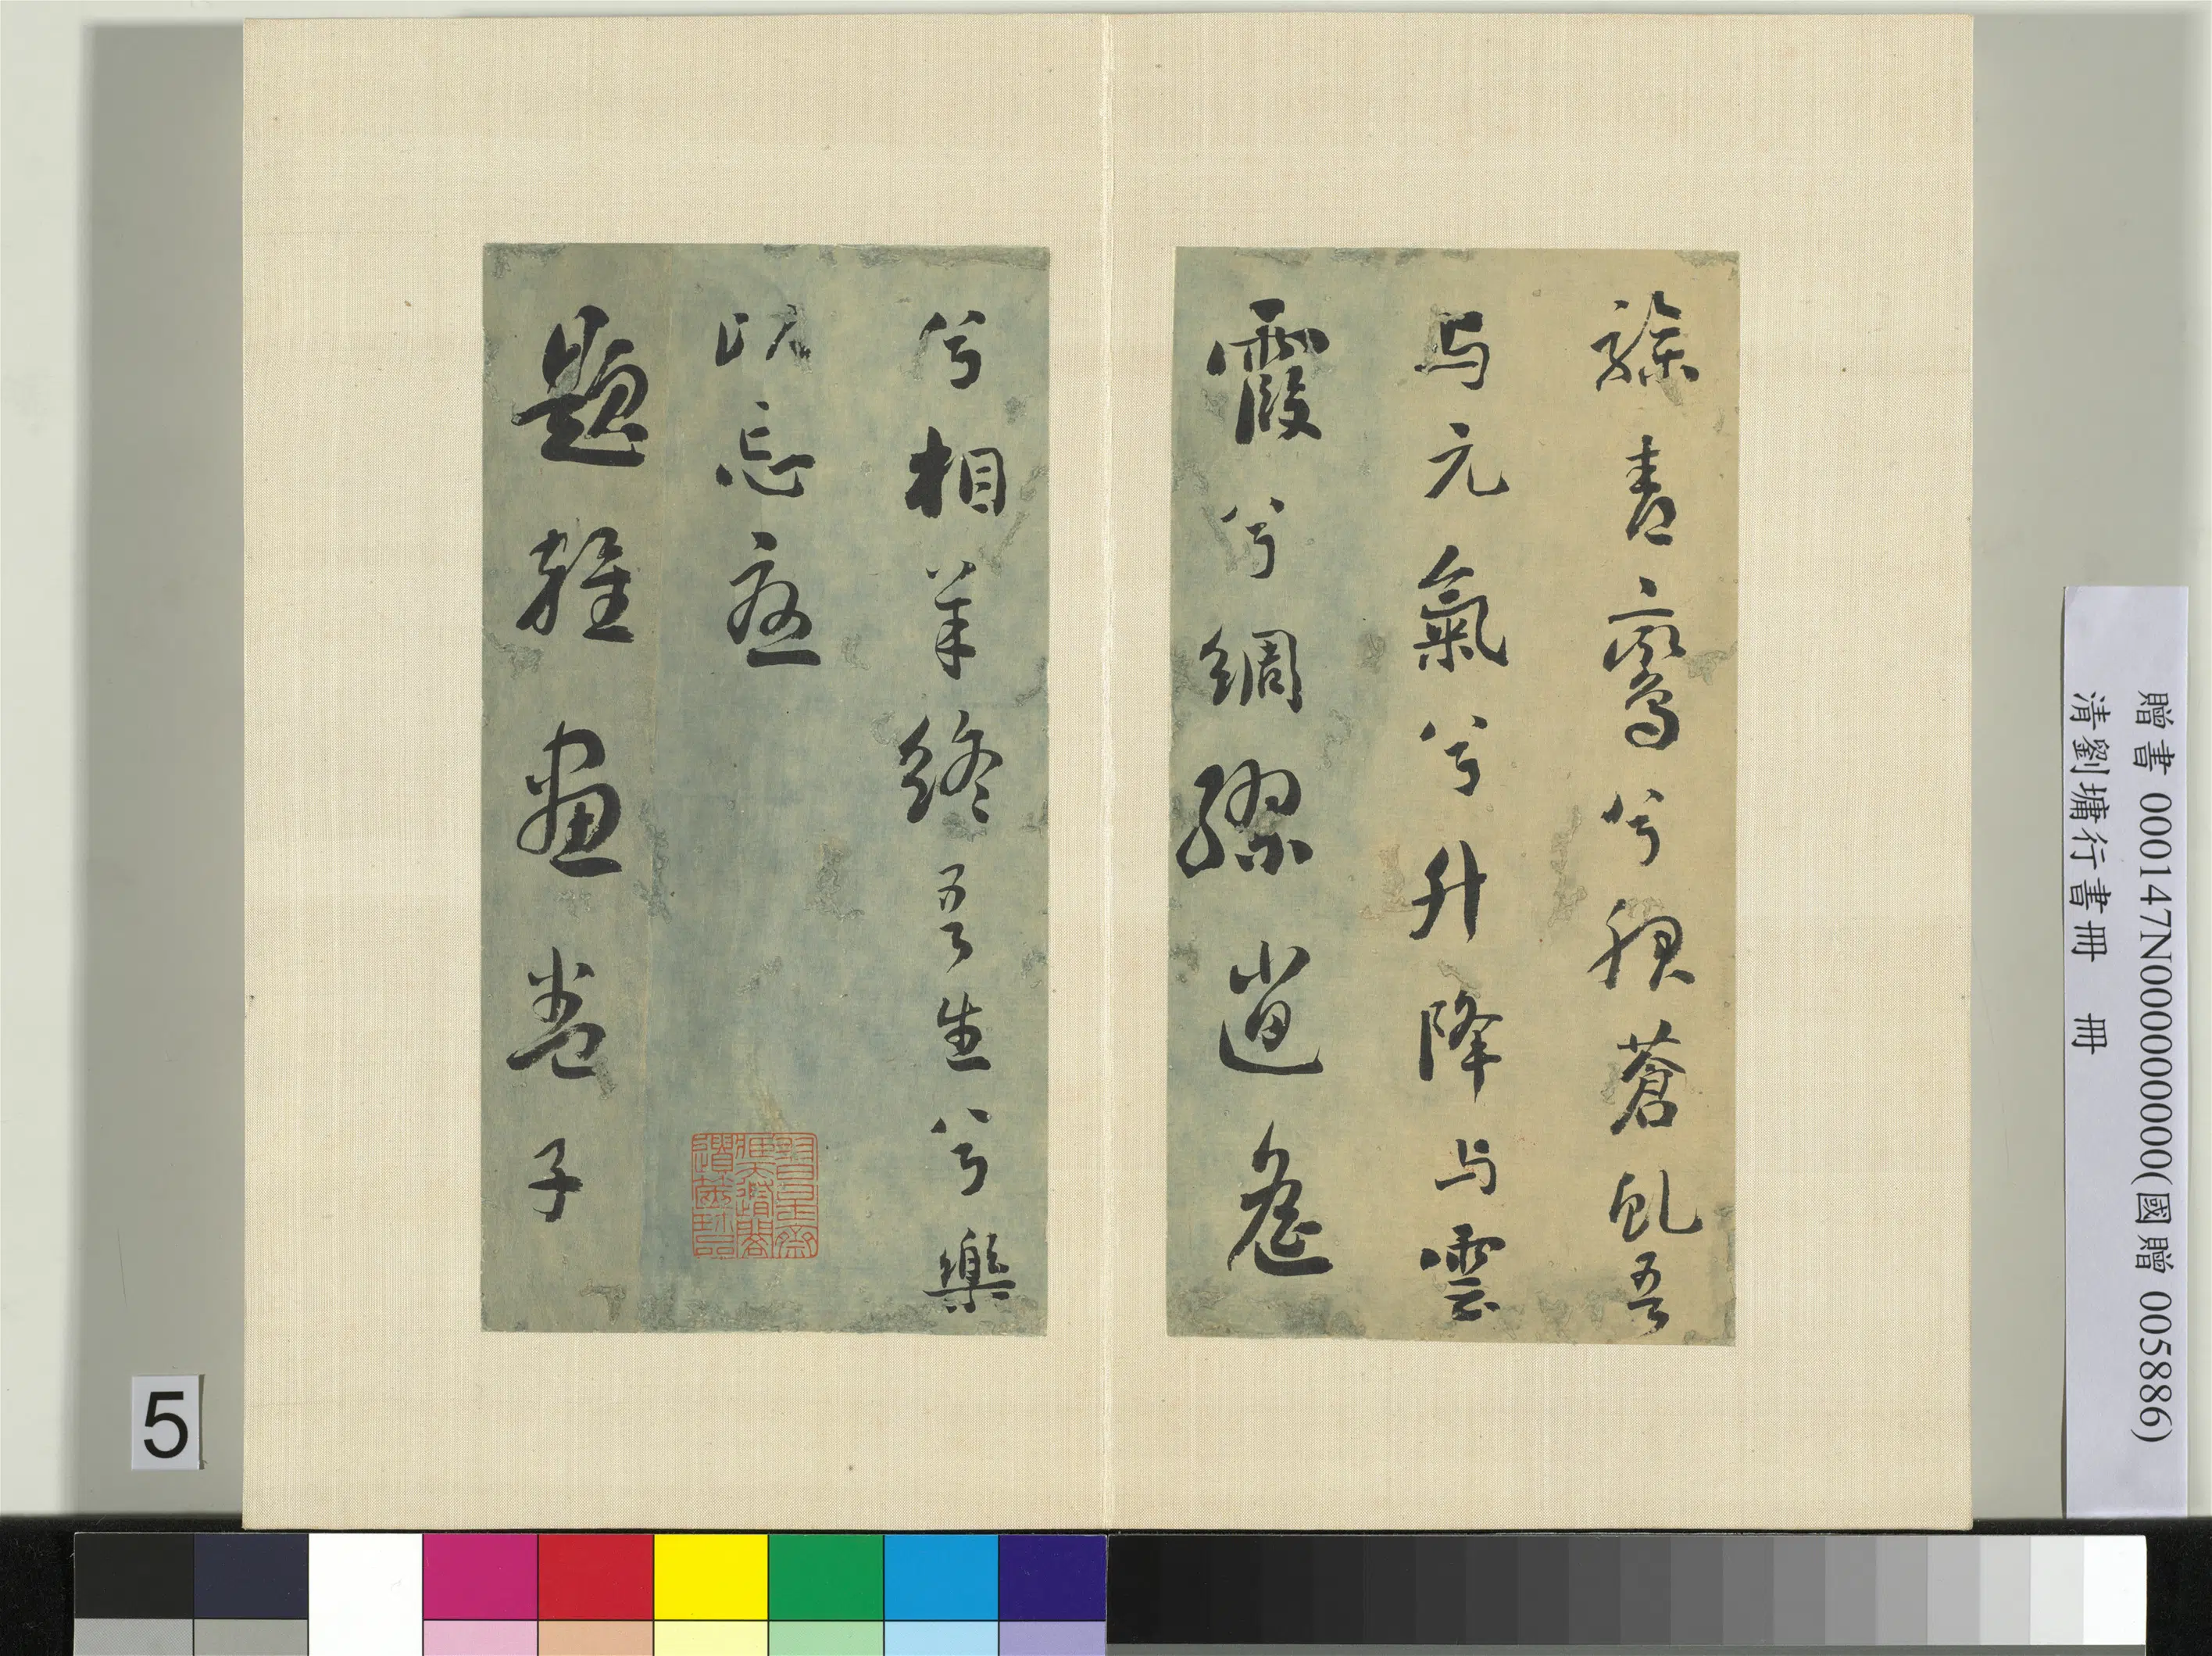 驂青鸞兮服蒼虬吾
与元氣兮升降与雲
霞兮綢繆逍遙
兮相羊終吾生兮樂
以忘憂
題雜畫卷子
贈書 000147N000000000(國贈 005886)
清劉墉行書冊 冊
5